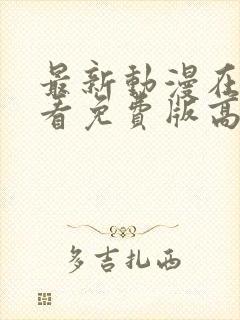 最新動漫在
看免費版高
多吉扎西